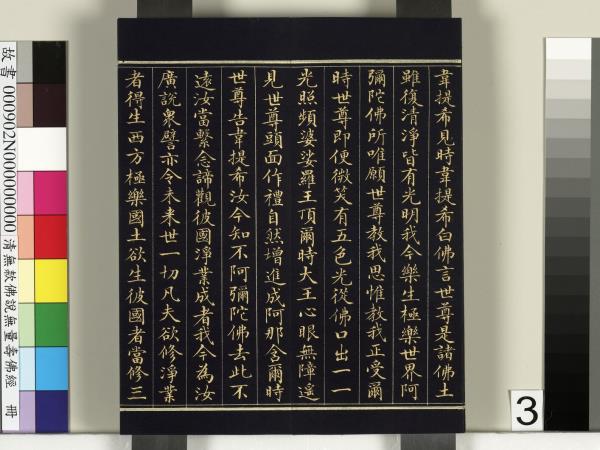 韋提希見時韋提希白佛言世尊是諸佛土
雖復清淨皆有光明我今樂生極樂世界阿
彌陀佛所唯願世尊教我思惟教我正受爾
時世尊即便微笑有五色光從佛口出一一
光照頻婆娑羅王頂爾時大王心眼無障遙
見世尊頭面作禮自然增進成阿那含爾時
世尊告韋提希汝今知不阿彌陀佛去此不
遠汝當繫念諦觀彼國淨業成者我今為汝
廣說衆譬亦令未來世一切凡夫欲修淨業
者得生西方極樂國土欲生彼國者當修三
故書 000902N000000000 清無款佛說無量壽佛經 冊
3